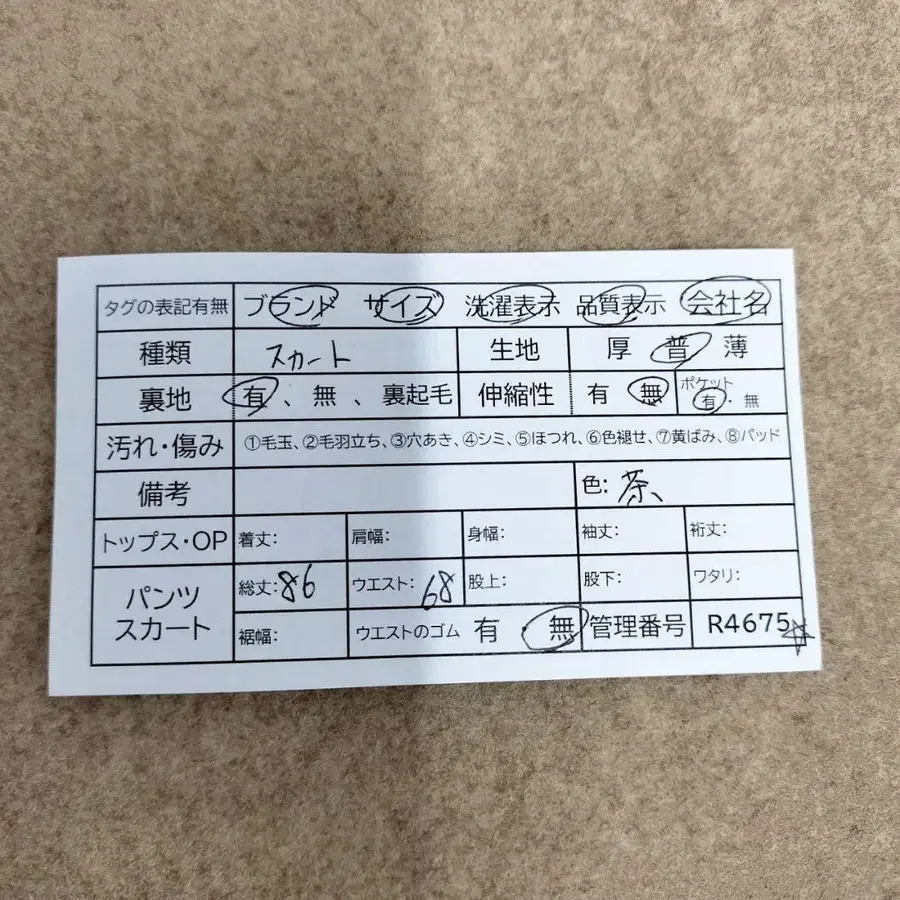 タグの表記有無 ブランド サイズ 洗濯表示 品質表示 会社名
種類 スカート 生地 厚 普 薄
裏地 有 、 無 、 裏起毛 伸縮性 有 無 ポケット 有・無
汚れ・傷み ①毛玉、②毛羽立ち、③穴あき、④シミ、⑤ほつれ、⑥色褪せ、⑦黄ばみ、⑧パッド
備考 色: 茶、
トップス・OP 着丈: 肩幅: 身幅: 袖丈: 裄丈:
パンツ スカート 総丈:86 ウエスト: 68 股上: 股下: ワタリ:
裾幅: ウエストのゴム 有 無 管理番号 R4675☆